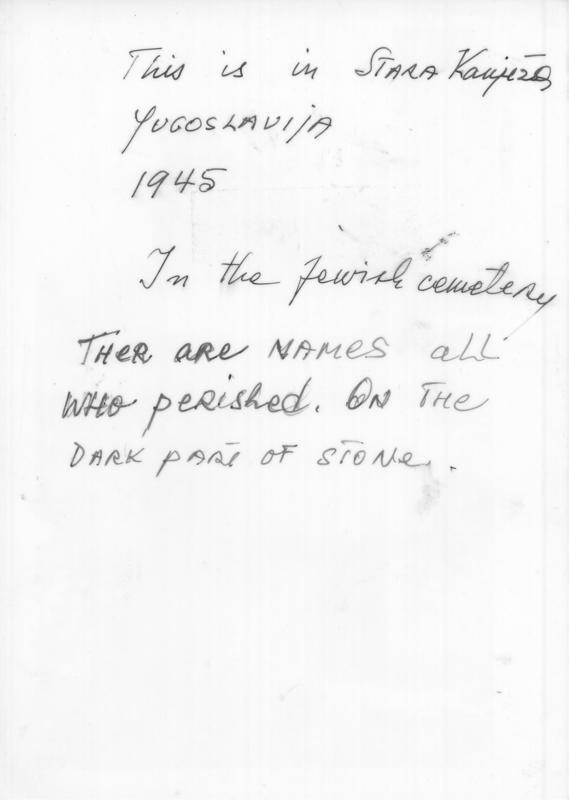 This is in STARA Kanjiža
YUGOSLAVIJA
1945
In the Jewish cemetery
THER ARE NAMES all
WHO perished. ON THE
DARK PART OF STONE.